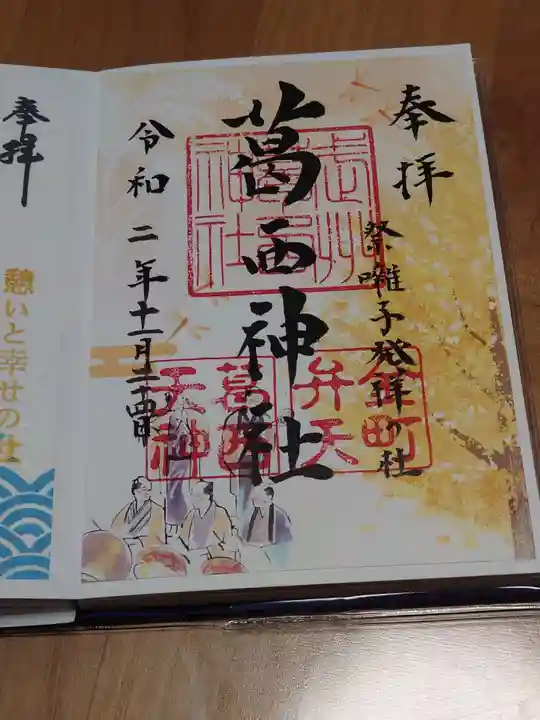 奉拝
祭囃子発祥の社
葛西神社
令和二年十一月二十四日
金町
弁天
葛西
天神
奉拝
憩いと幸せの社